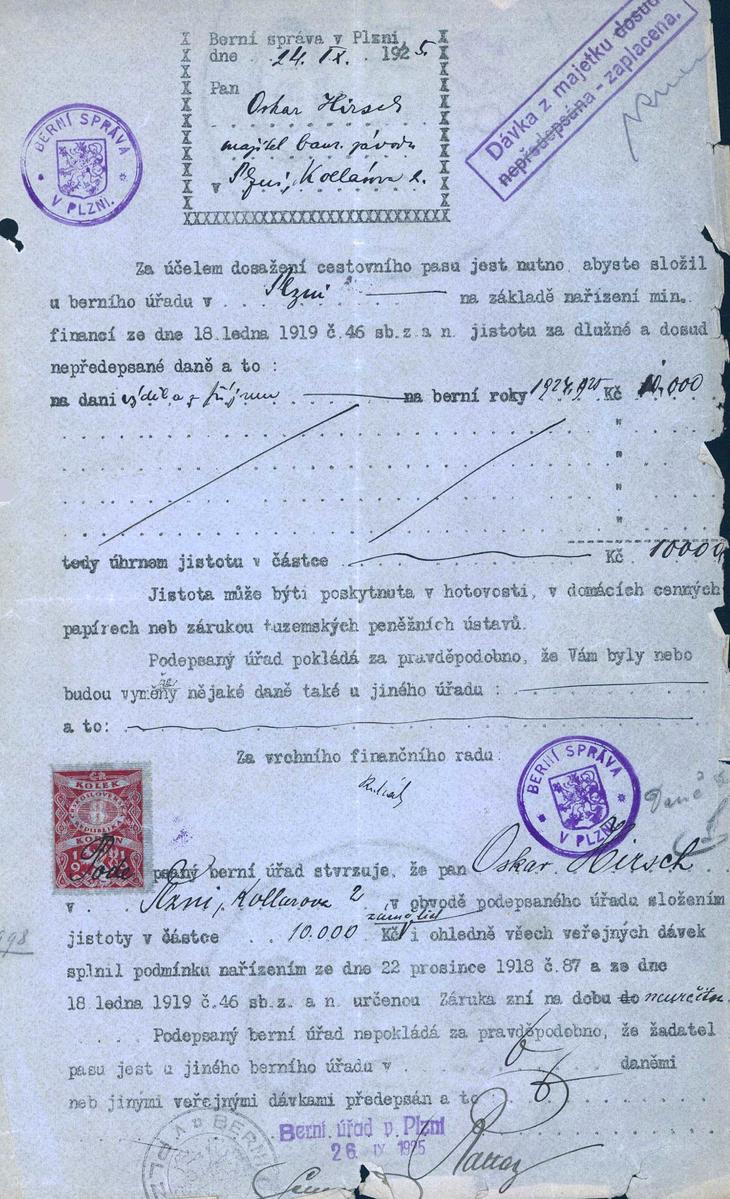 Berní správa v Plzni
dne 24. IX. 1925.
Pan
Oskar Hirsch
majitel
v Plzni, Kollárova 2.
BERNÍ SPRÁVA V PLZNI.
Dávka z majetku dosud
nepředepsána - zaplacena.
Za účelem dosažení cestovního pasu jest nutno, abyste složil
u berního úřadu v Plzni na základě nařízení min.
financí ze dne 18.ledna 1919 č.46 sb.z.a n. jistotu za dlužné a dosud
nepředepsané daně a to :
na dani výděl. a z příjmu na berní roky 1924, 925 Kč 10.000
"
"
"
"
tedy úhrnem jistotu v částce Kč 10000
Jistota může býti poskytnuta v hotovosti, v domácích cenných
papírech neb zárukou tuzemských peněžních ústavů.
Podepsaný úřad pokládá za pravděpodobno, že Vám byly nebo
budou vyměřeny nějaké daně také u jiného úřadu :
a to:
Za vrchního finančního radu:
BERNÍ SPRÁVA V PLZNI
KOLEK
Pode psaný berní úřad stvrzuje, že pan Oskar Hirsch
v Plzni, Kollarova 2 v obvodě podepsaného úřadu složením
jistoty v částce 10.000 Kč i ohledně všech veřejných dávek
splnil podmínku nařízením ze dne 22 prosince 1918 č.87 a ze dne
18 ledna 1919 č.46 sb.z. a n. určenou Záruka zní na dobu do neurčitou
Podepsaný berní úřad nepokládá za pravděpodobno, že žadatel
pasu jest u jiného berního úřadu v daněmi
neb jinými veřejnými dávkami předepsán a to
Berní úřad v Plzni
26. IX 1925